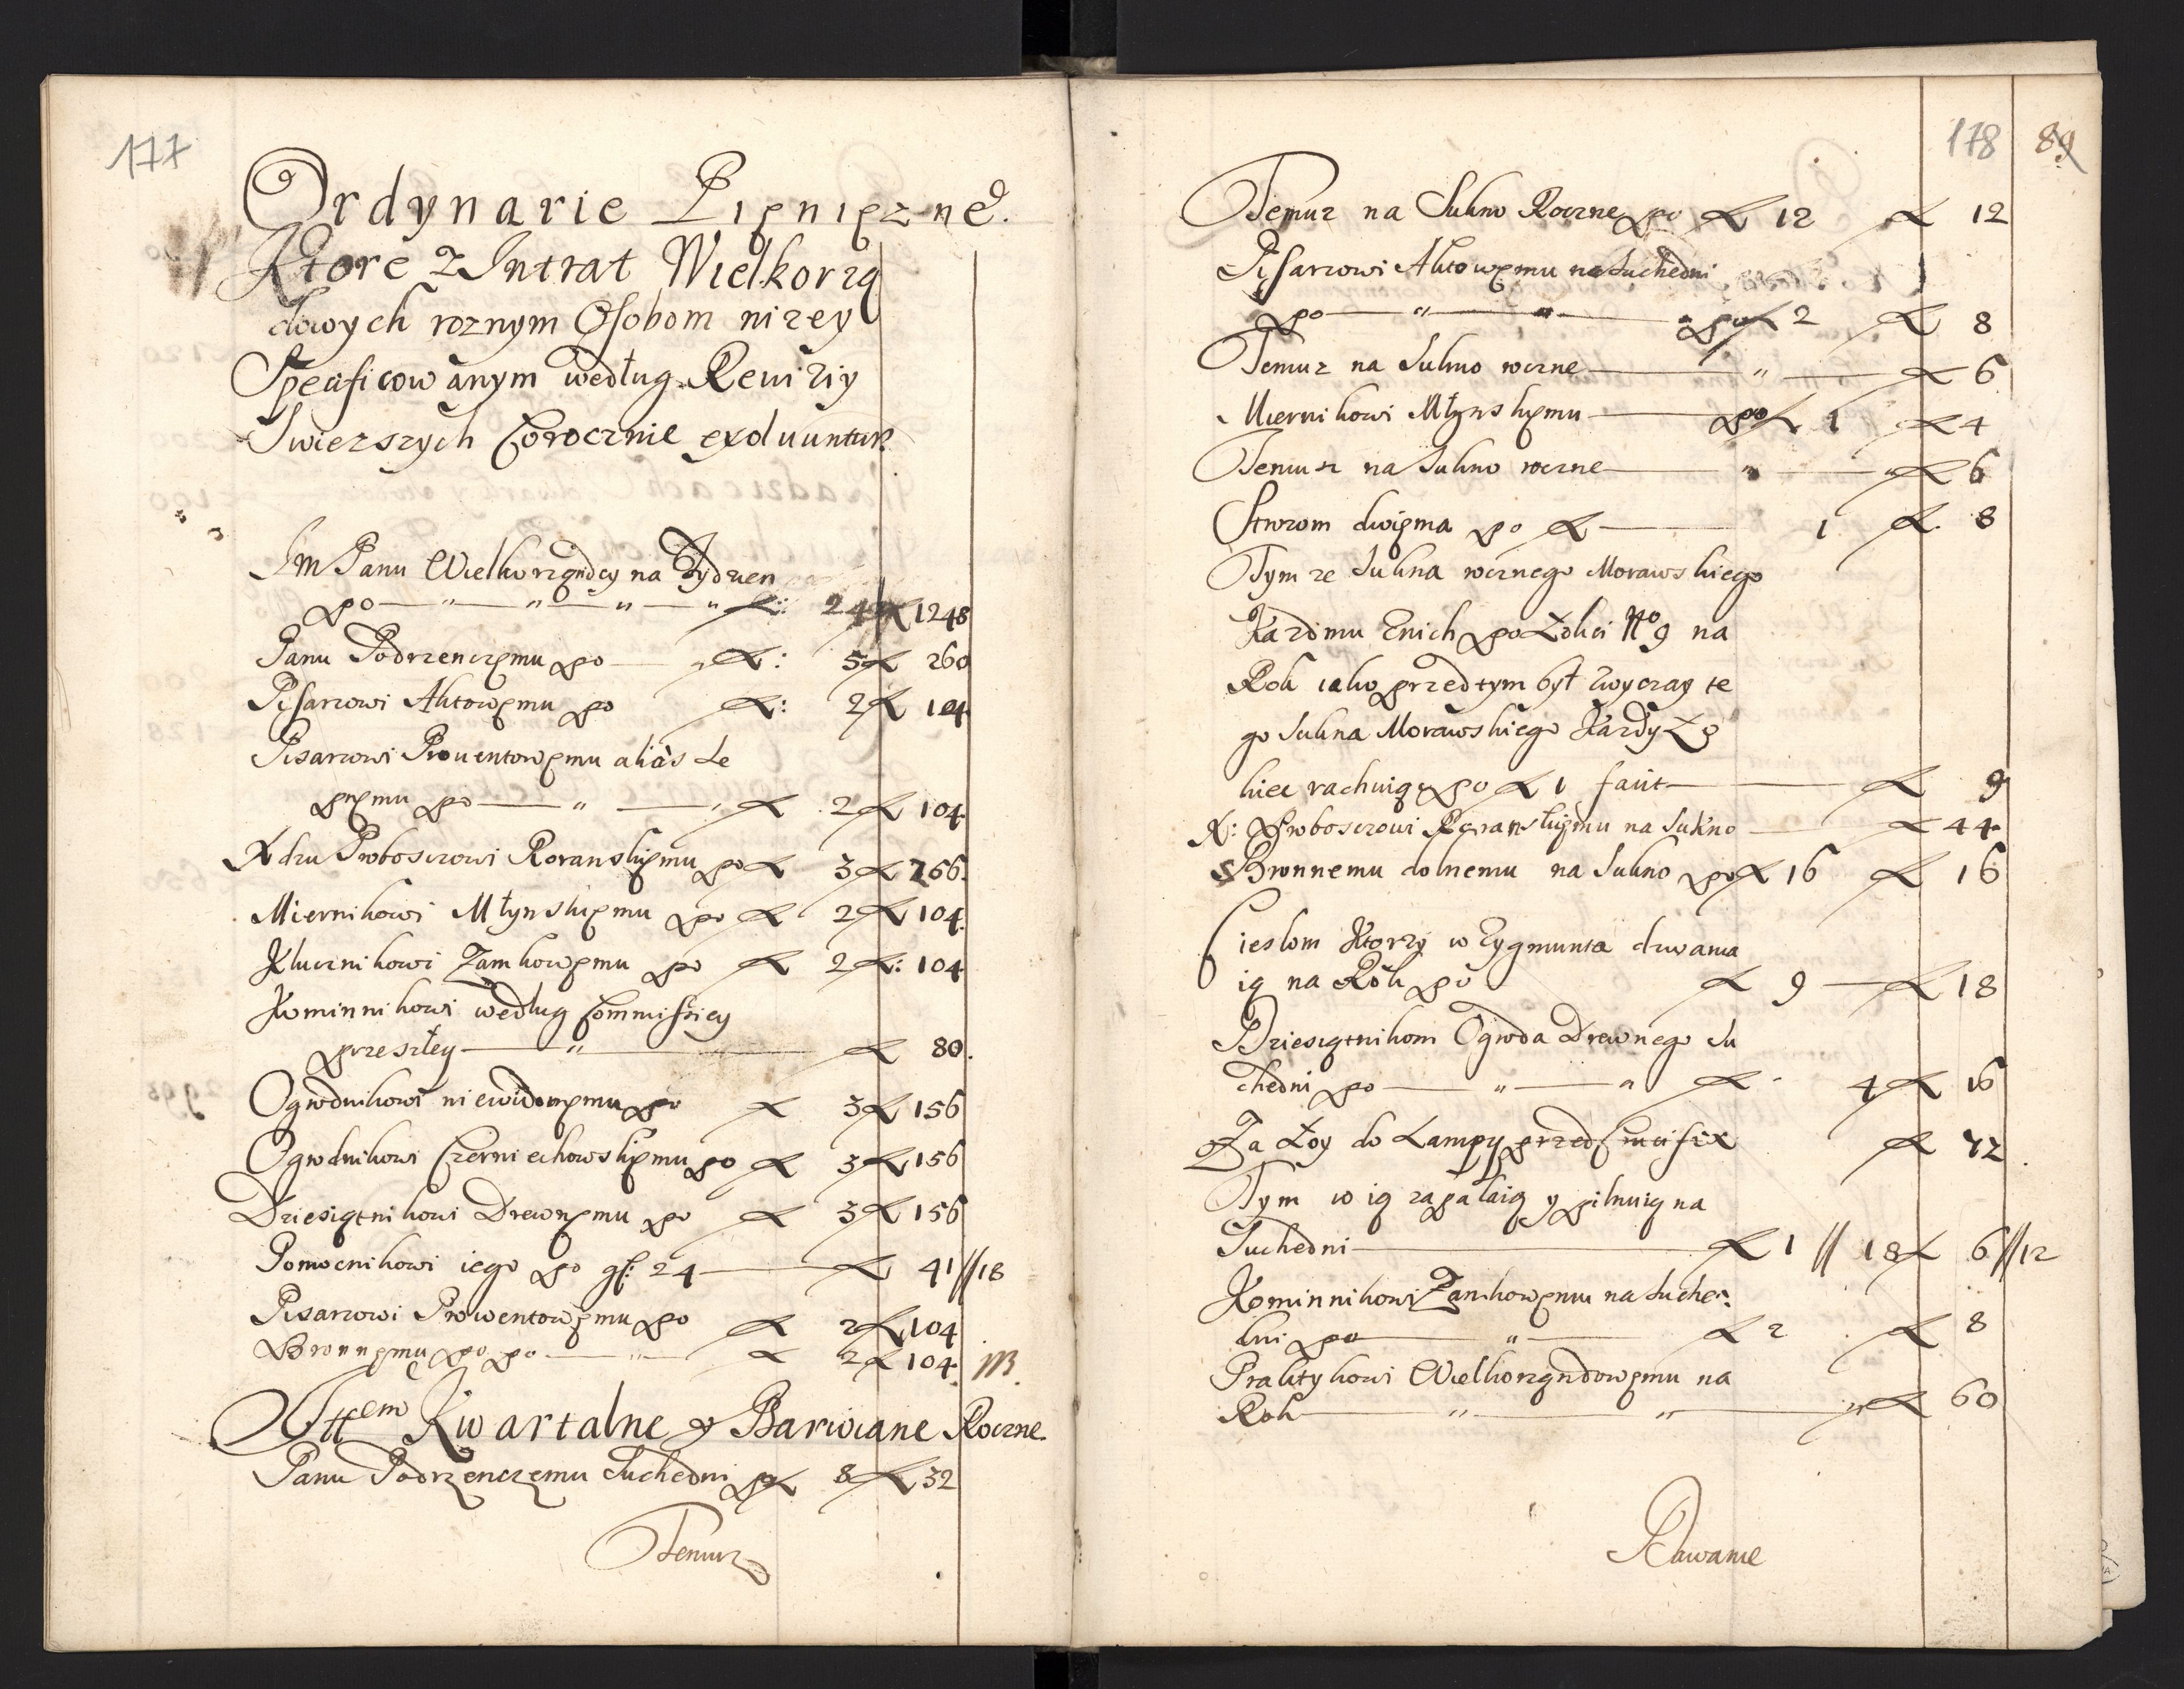 177
Ordynarie Pięnięzne.
Ktore z Intrat Wielkorzą
dowych roznym Osobom nizey
Specificowanym według Rewiziy
Swiezszych Corocznie exoluuntur
Im Panu Wielkorządcy na Tydzien
po — " — " — " — " fl: 24 fl 1248
Panu Podrzenczęmu po — " fl: 5 fl 260
Pisarzowi Aktowęmu po fl: 2 fl 104
Pisarzowi Prouentowęmu alias Le
gnęmu po — " — " fl 2 fl 104
X dzu Proboszczowi Roranskięmu po fl 3 fl 156.
Miernikowi Młynskięmu po fl 2 fl 104.
Klucznikowi Zamkowęmu po fl 2 fl: 104
Kominnikowi według Commissiey
przeszłey — " — fl 80.
Ogrodnikowi niewidomęmu po fl 3 fl 156
Ogrodnikowi Czerniechowskięmu po fl 3 fl 156
Dziesiątnikowi Drewnęmu po fl 3 fl 156
Pomocnikowi iego po gr: 24 — fl 41 // 18
Pisarzowi Prowentowęmu po fl 2 fl 104
Bronnęmu po po — " — fl 2 fl 104.
Ittem Kwartalne y Barwiane Roczne.
Panu Podrzenczemu Suchedni po fl 8 fl 32
Temuz
178 89
Temuz na Sukno Roczne po fl 12 fl 12
Pisarzowi Aktowęmu na Suchedni
po — " — " — " po fl 2 fl 8
Temuz na Sukno roczne — " — fl 6
Miernikowi Młynskięmu — po fl 1 fl 4
Temuz na Sukno roczne — " — " fl 6
Strozom dwięma po fl — 1 fl. 8
Tym ze Sukna rocznego Morawskiego
Kazdmu Znich po Łokci No 9 na
Rok iako przedtym był zwyczay te
go Sukna Morawskiego Kazdy Ło
kiec rachuiąc po fl 1 facit — fl 9
X: Proboszczowi Roranskięmu na Sukno — fl 44
Bronnemu dolnemu na Sukno po fl 16 fl 16
Cieslom Ktorzy w Zygmunta dzwania
ią na Rok po fl 9 — fl 18
Dziesiątnikom Ogroda Drewnego Su
chedni po — " — " fl 4 fl 16
Za Łoy do Lampy przed Crucifix fl 72
Tym co ią zapalaią y pilnuią na
Suchedni — fl 1 // 18 fl 6 // 12
Kominnikowi Zamkowęmu na Suche:
dni po — " — fl 2 fl 8
Praktykowi Wielkorządowęmu na
Rok — " — " — " fl 60
Dawanie